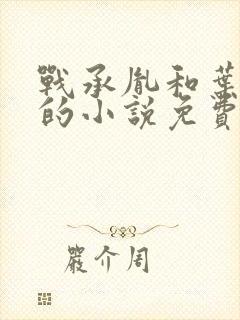 戰承胤和葉
的小說免費
嚴介周